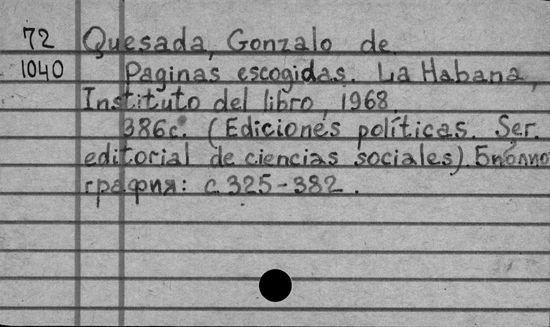 72 Quesada, Gonzalo de.
1040 Paginas escogidas. La Habana,
Instituto del libro, 1968.
386c. (Ediciones políticas. Ser.
editorial de ciencias sociales). Библио
графия: с. 325-382.